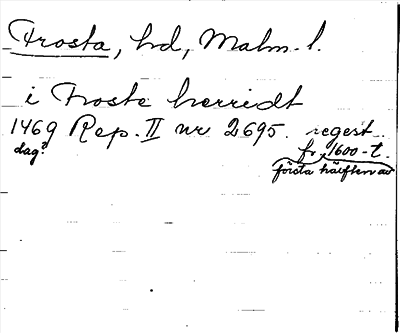 Frosta, hd, Malm. l.
i Froste herridt
1469 Rep. II nr 2695. regest
dag? fr. 1600-t.
första hälften av